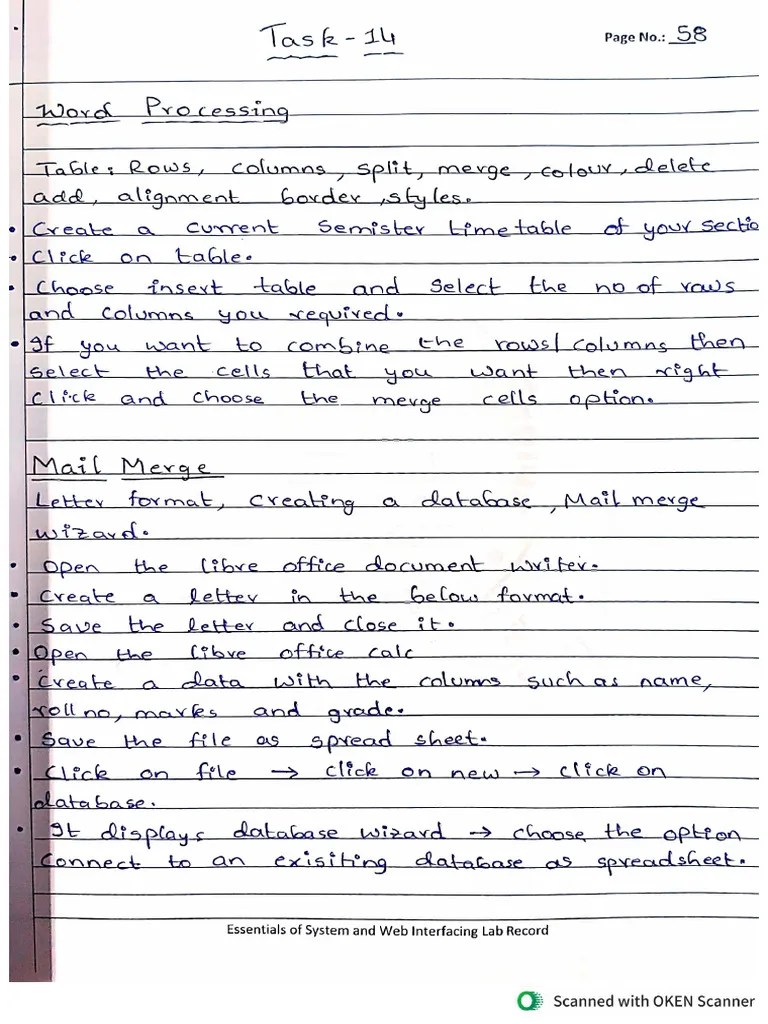 Task-14
Page No.: 58
Word Processing
Table: Rows, columns, split, merge, colour, delete
add, alignment border, styles.
• Create a current Semister timetable of your sectio
• Click on table.
• Choose insert table and select the no of rows
and columns you required.
• If you want to combine the rows/columns then
select the cells that you want then right
click and choose the merge cells option.
Mail Merge
Letter format, creating a database, Mail merge
wizard.
• Open the libre office document writer.
• Create a letter in the below format.
• Save the letter and close it.
• Open the libre office calc
• Create a data with the columns such as name,
roll no, marks and grade.
• Save the file as spread sheet.
• Click on file → click on new → click on
database.
• It displays database wizard → choose the option
connect to an exisiting database as spreadsheet.
Essentials of System and Web Interfacing Lab Record
Scanned with OKEN Scanner